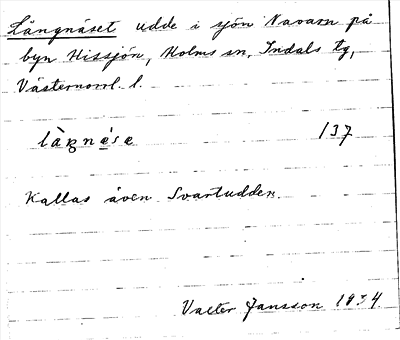 Långnäset udde i sjön Navarn på
byn Hissjön, Holms sn, Indals tg,
Västernorrl. l.
137
Kallas även Svartudden.
Valter Jansson 1934.